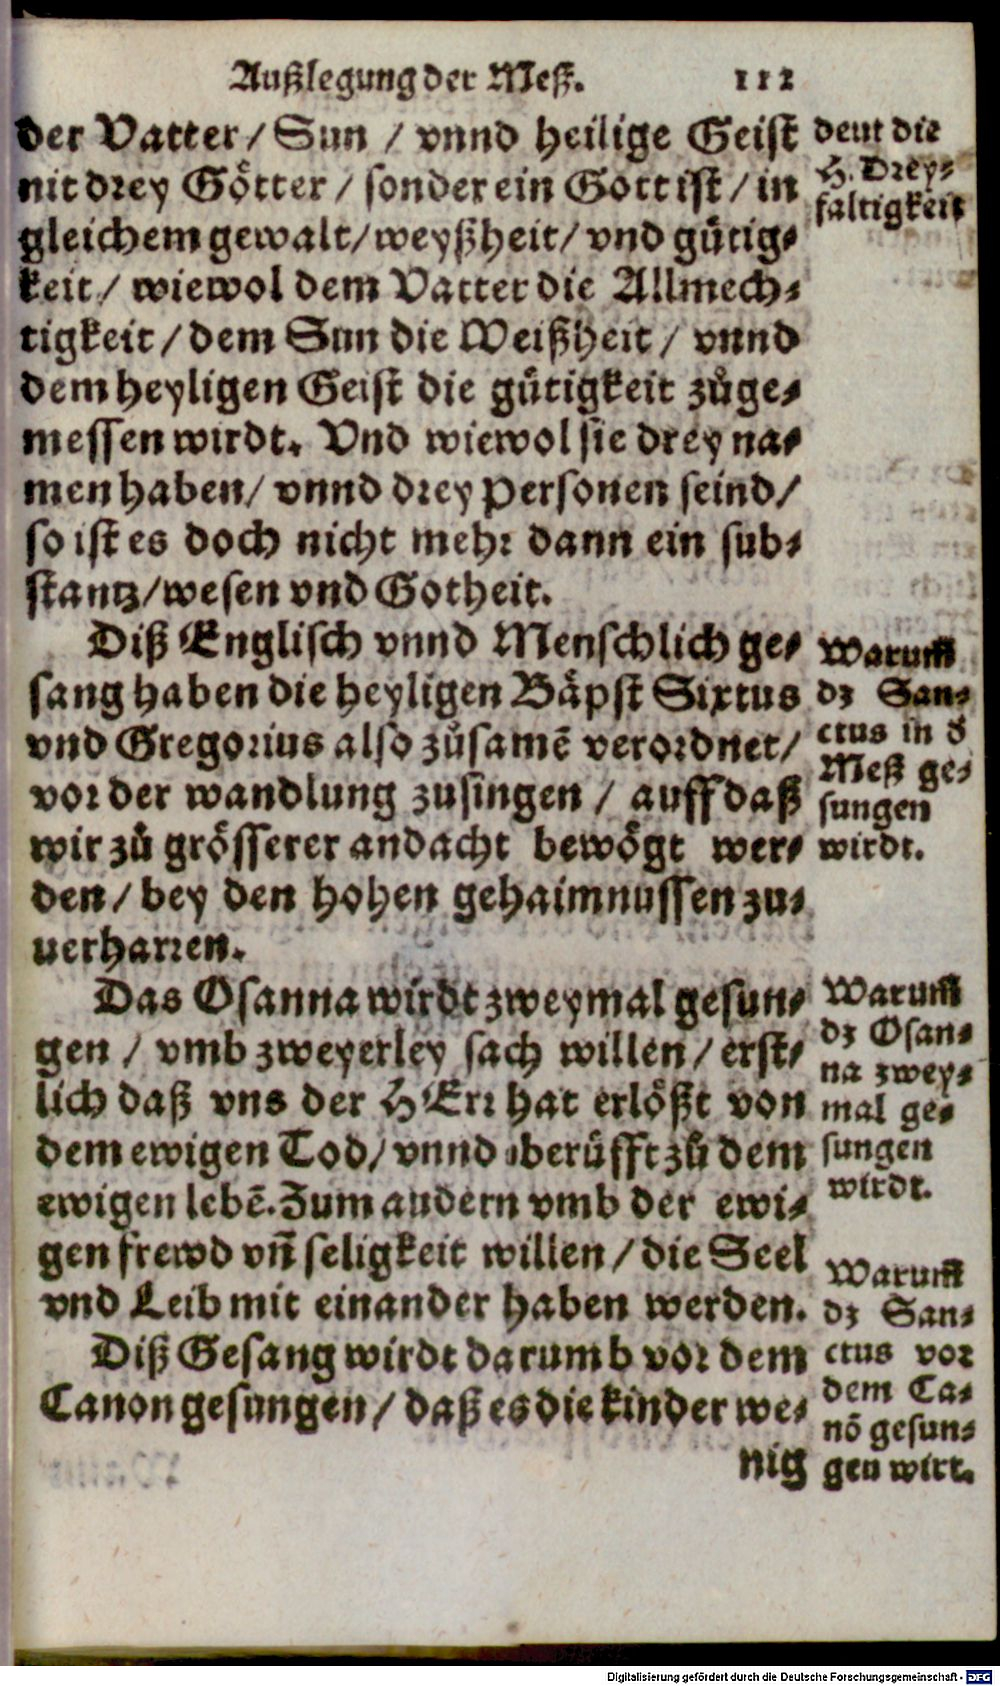 Außlegung der Meß. 112
der Vatter / Sun / vnnd heilige Geist
nit drey Go̊tter / sonder ein Gott ist / in
gleichem gewalt / weyßheit / vnd gu̎tig⸗
keit / wiewol dem Vatter die Allmech⸗
tigkeit / dem Sun die Weißheit / vnnd
dem heyligen Geist die gu̎tigkeit zůge⸗
messen wirdt. Vnd wiewol sie drey na⸗
men haben / vnnd drey Personen seind /
so ist es doch nicht mehr dann ein sub⸗
stantz / wesen vnd Gotheit.
Diß Englisch vnnd Menschlich ge⸗
sang haben die heyligen Bäpst Sixtus
vnd Gregorius also zůsamē verordnet /
vor der wandlung zusingen / auff daß
wir zů grösserer andacht bewögt wer⸗
den / bey den hohen gehaimnussen zu⸗
uerharren.
Das Osanna wirdt zweymal gesun⸗
gen / vmb zweyerley sach willen / erst⸗
lich daß vns der HErr hat erlößt von
dem ewigen Tod / vnnd berüfft zů dem
ewigen lebē. Zum andern vmb der ewi⸗
gen frewd vn̄ seligkeit willen / die Seel
vnd Leib mit einander haben werden.
Diß Gesang wirdt darumb vor dem
Canon gesungen / daß es die kinder we⸗
nig
deut die
H. Drey⸗
faltigkeit
Warum̄
dz San⸗
ctus in d̕
Meß ge⸗
sungen
wirdt.
Warum̄
dz Osan⸗
na zwey⸗
mal ge⸗
sungen
wirdt.
Warum̄
dz San⸗
ctus vor
dem Ca⸗
nō gesun⸗
gen wirt.
Digitalisierung gefördert durch die Deutsche Forschungsgemeinschaft - DFG